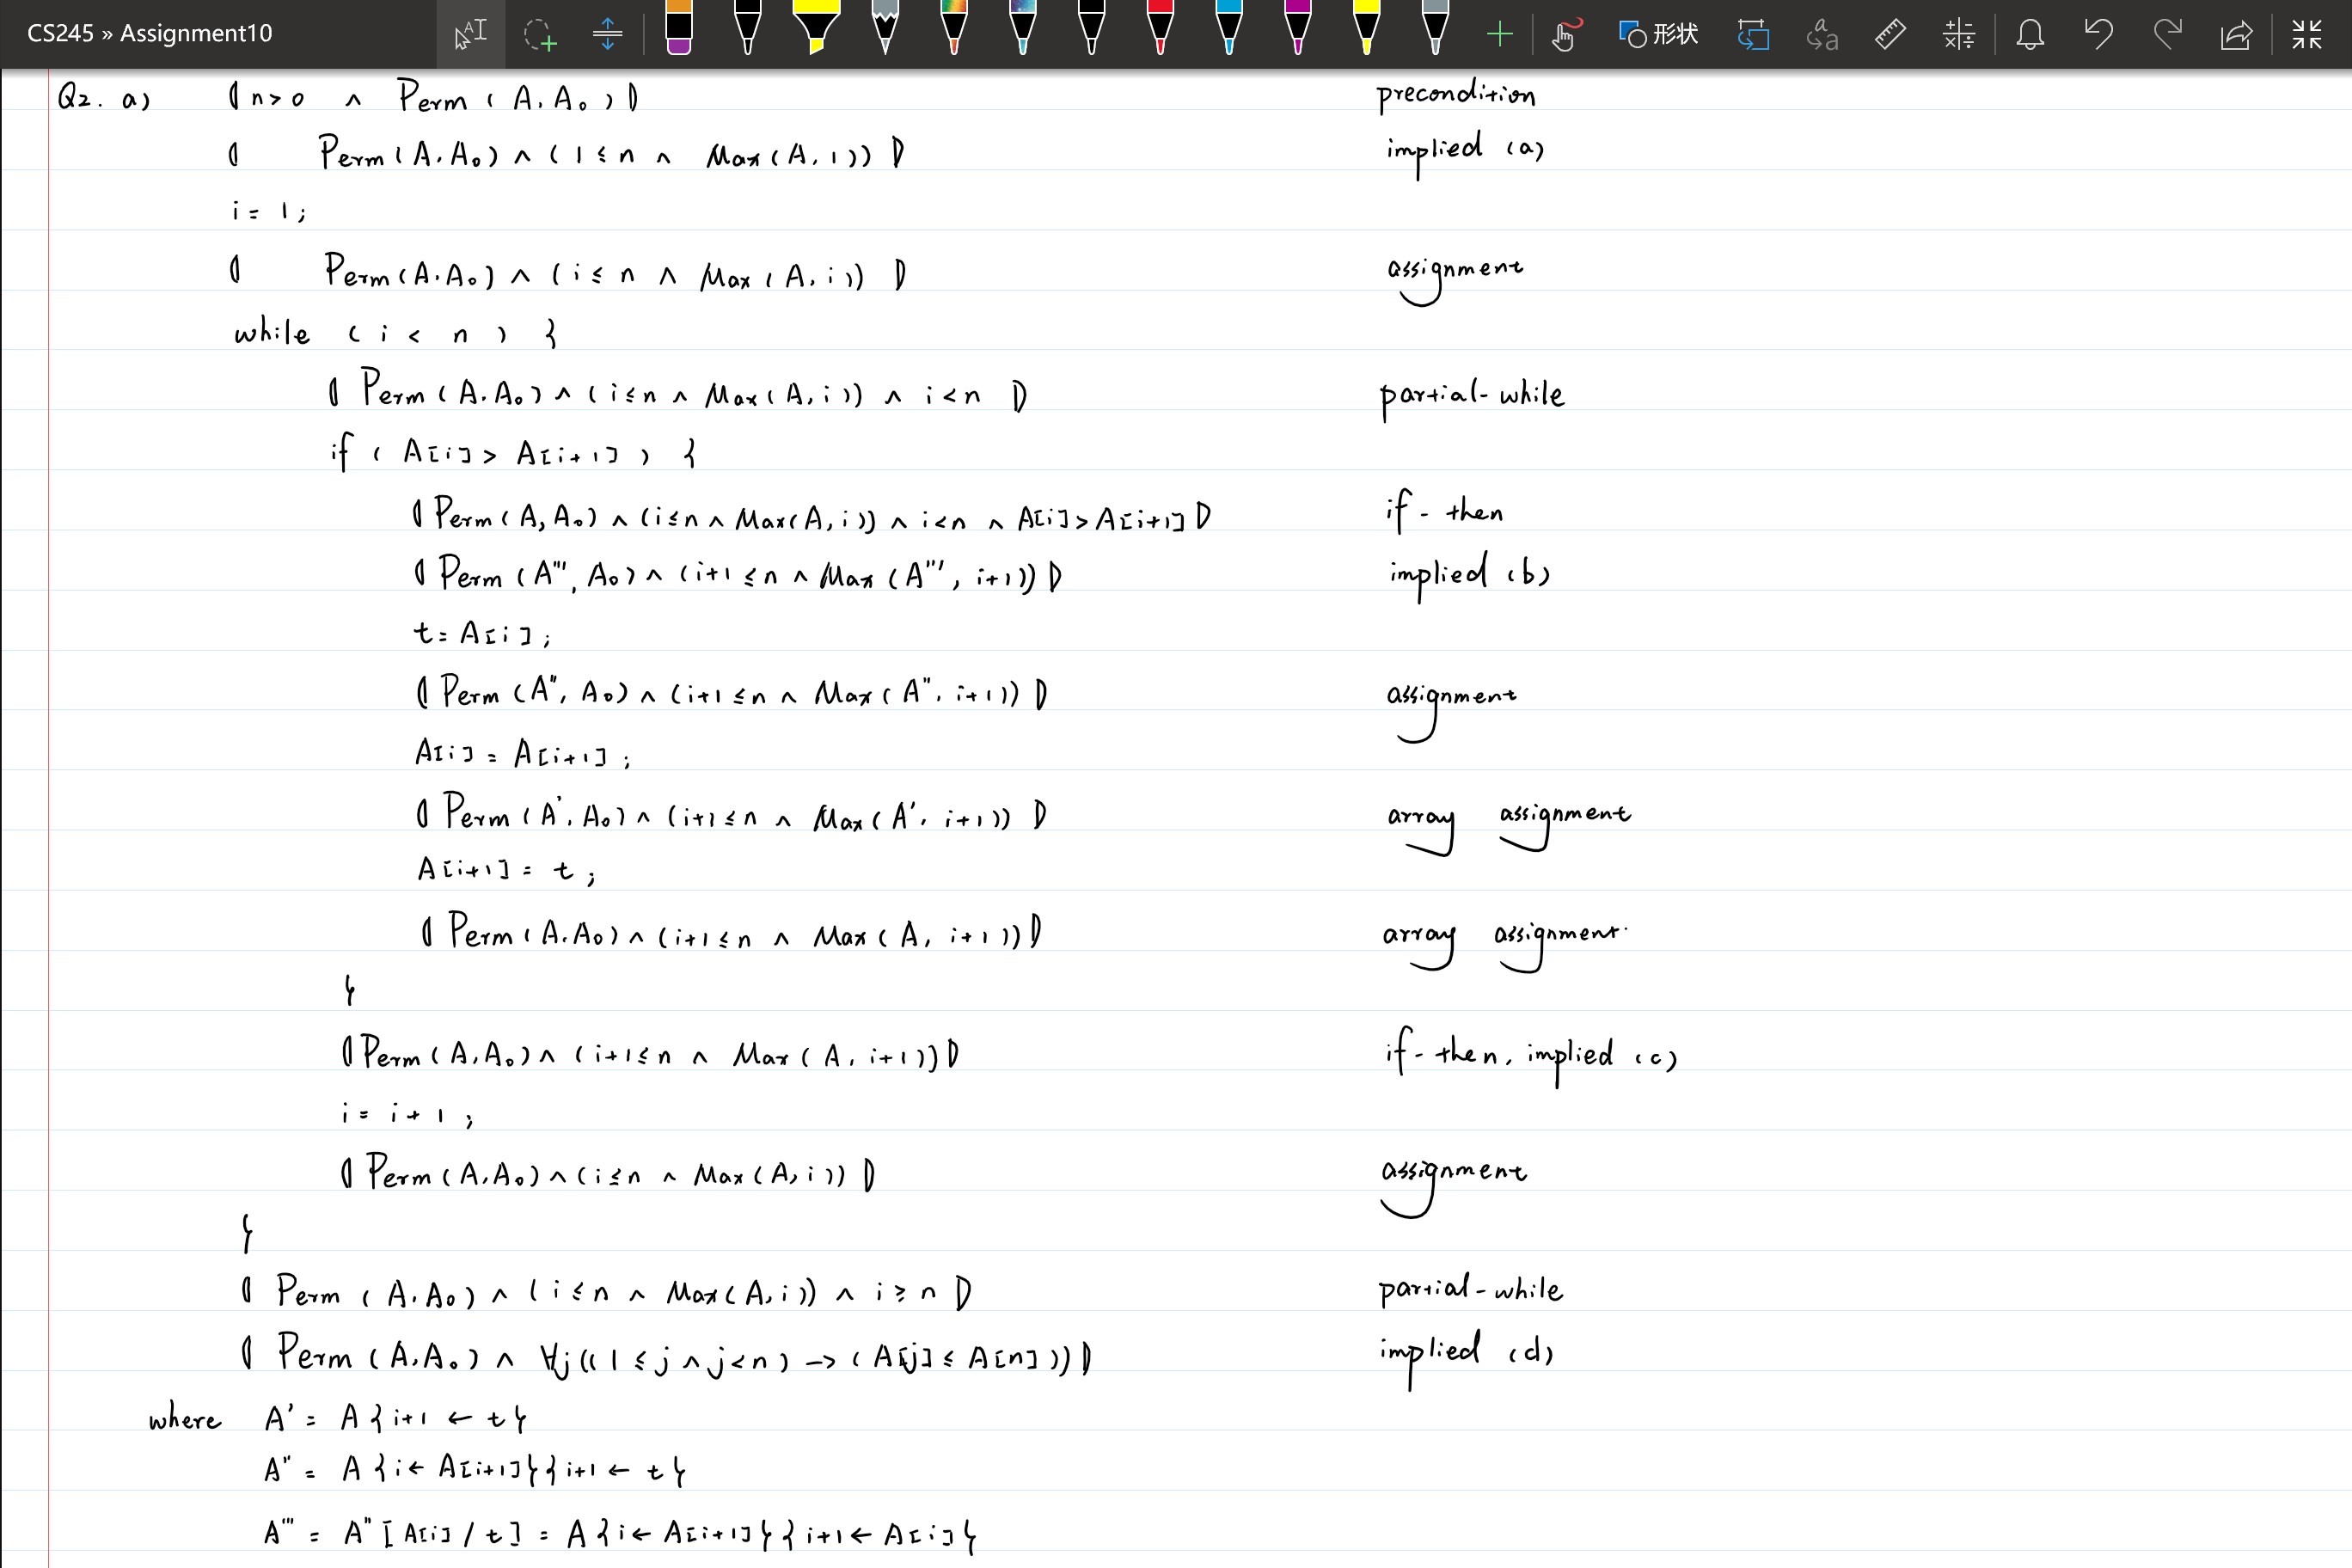 CS245 » Assignment10
形状
Q2. a) ⦇ n > 0 ∧ Perm ( A, A₀ ) ⦈ precondition
⦇ Perm ( A, A₀ ) ∧ ( 1 ≤ n ∧ Max ( A, 1 )) ⦈ implied (a)
i = 1 ;
⦇ Perm ( A, A₀ ) ∧ ( i ≤ n ∧ Max ( A, i )) ⦈ assignment
while ( i < n ) {
⦇ Perm ( A, A₀ ) ∧ ( i ≤ n ∧ Max ( A, i )) ∧ i < n ⦈ partial-while
if ( A[i] > A[i+1] ) {
⦇ Perm ( A, A₀ ) ∧ ( i ≤ n ∧ Max ( A, i )) ∧ i < n ∧ A[i] > A[i+1] ⦈ if - then
⦇ Perm ( A''', A₀ ) ∧ ( i+1 ≤ n ∧ Max ( A''', i+1 )) ⦈ implied (b)
t = A[i] ;
⦇ Perm ( A'', A₀ ) ∧ ( i+1 ≤ n ∧ Max ( A'', i+1 )) ⦈ assignment
A[i] = A[i+1] ;
⦇ Perm ( A', A₀ ) ∧ ( i+1 ≤ n ∧ Max ( A', i+1 )) ⦈ array assignment
A[i+1] = t ;
⦇ Perm ( A, A₀ ) ∧ ( i+1 ≤ n ∧ Max ( A, i+1 )) ⦈ array assignment
}
⦇ Perm ( A, A₀ ) ∧ ( i+1 ≤ n ∧ Max ( A, i+1 )) ⦈ if - then, implied (c)
i = i + 1 ;
⦇ Perm ( A, A₀ ) ∧ ( i ≤ n ∧ Max ( A, i )) ⦈ assignment
}
⦇ Perm ( A, A₀ ) ∧ ( i ≤ n ∧ Max ( A, i )) ∧ i ≥ n ⦈ partial-while
⦇ Perm ( A, A₀ ) ∧ ∀j (( 1 ≤ j ∧ j < n ) → ( A[j] ≤ A[n] )) ⦈ implied (d)
where A' = A { i+1 ← t }
A'' = A { i ← A[i+1] } { i+1 ← t }
A''' = A'' [ A[i] / t ] = A { i ← A[i+1] } { i+1 ← A[i] }